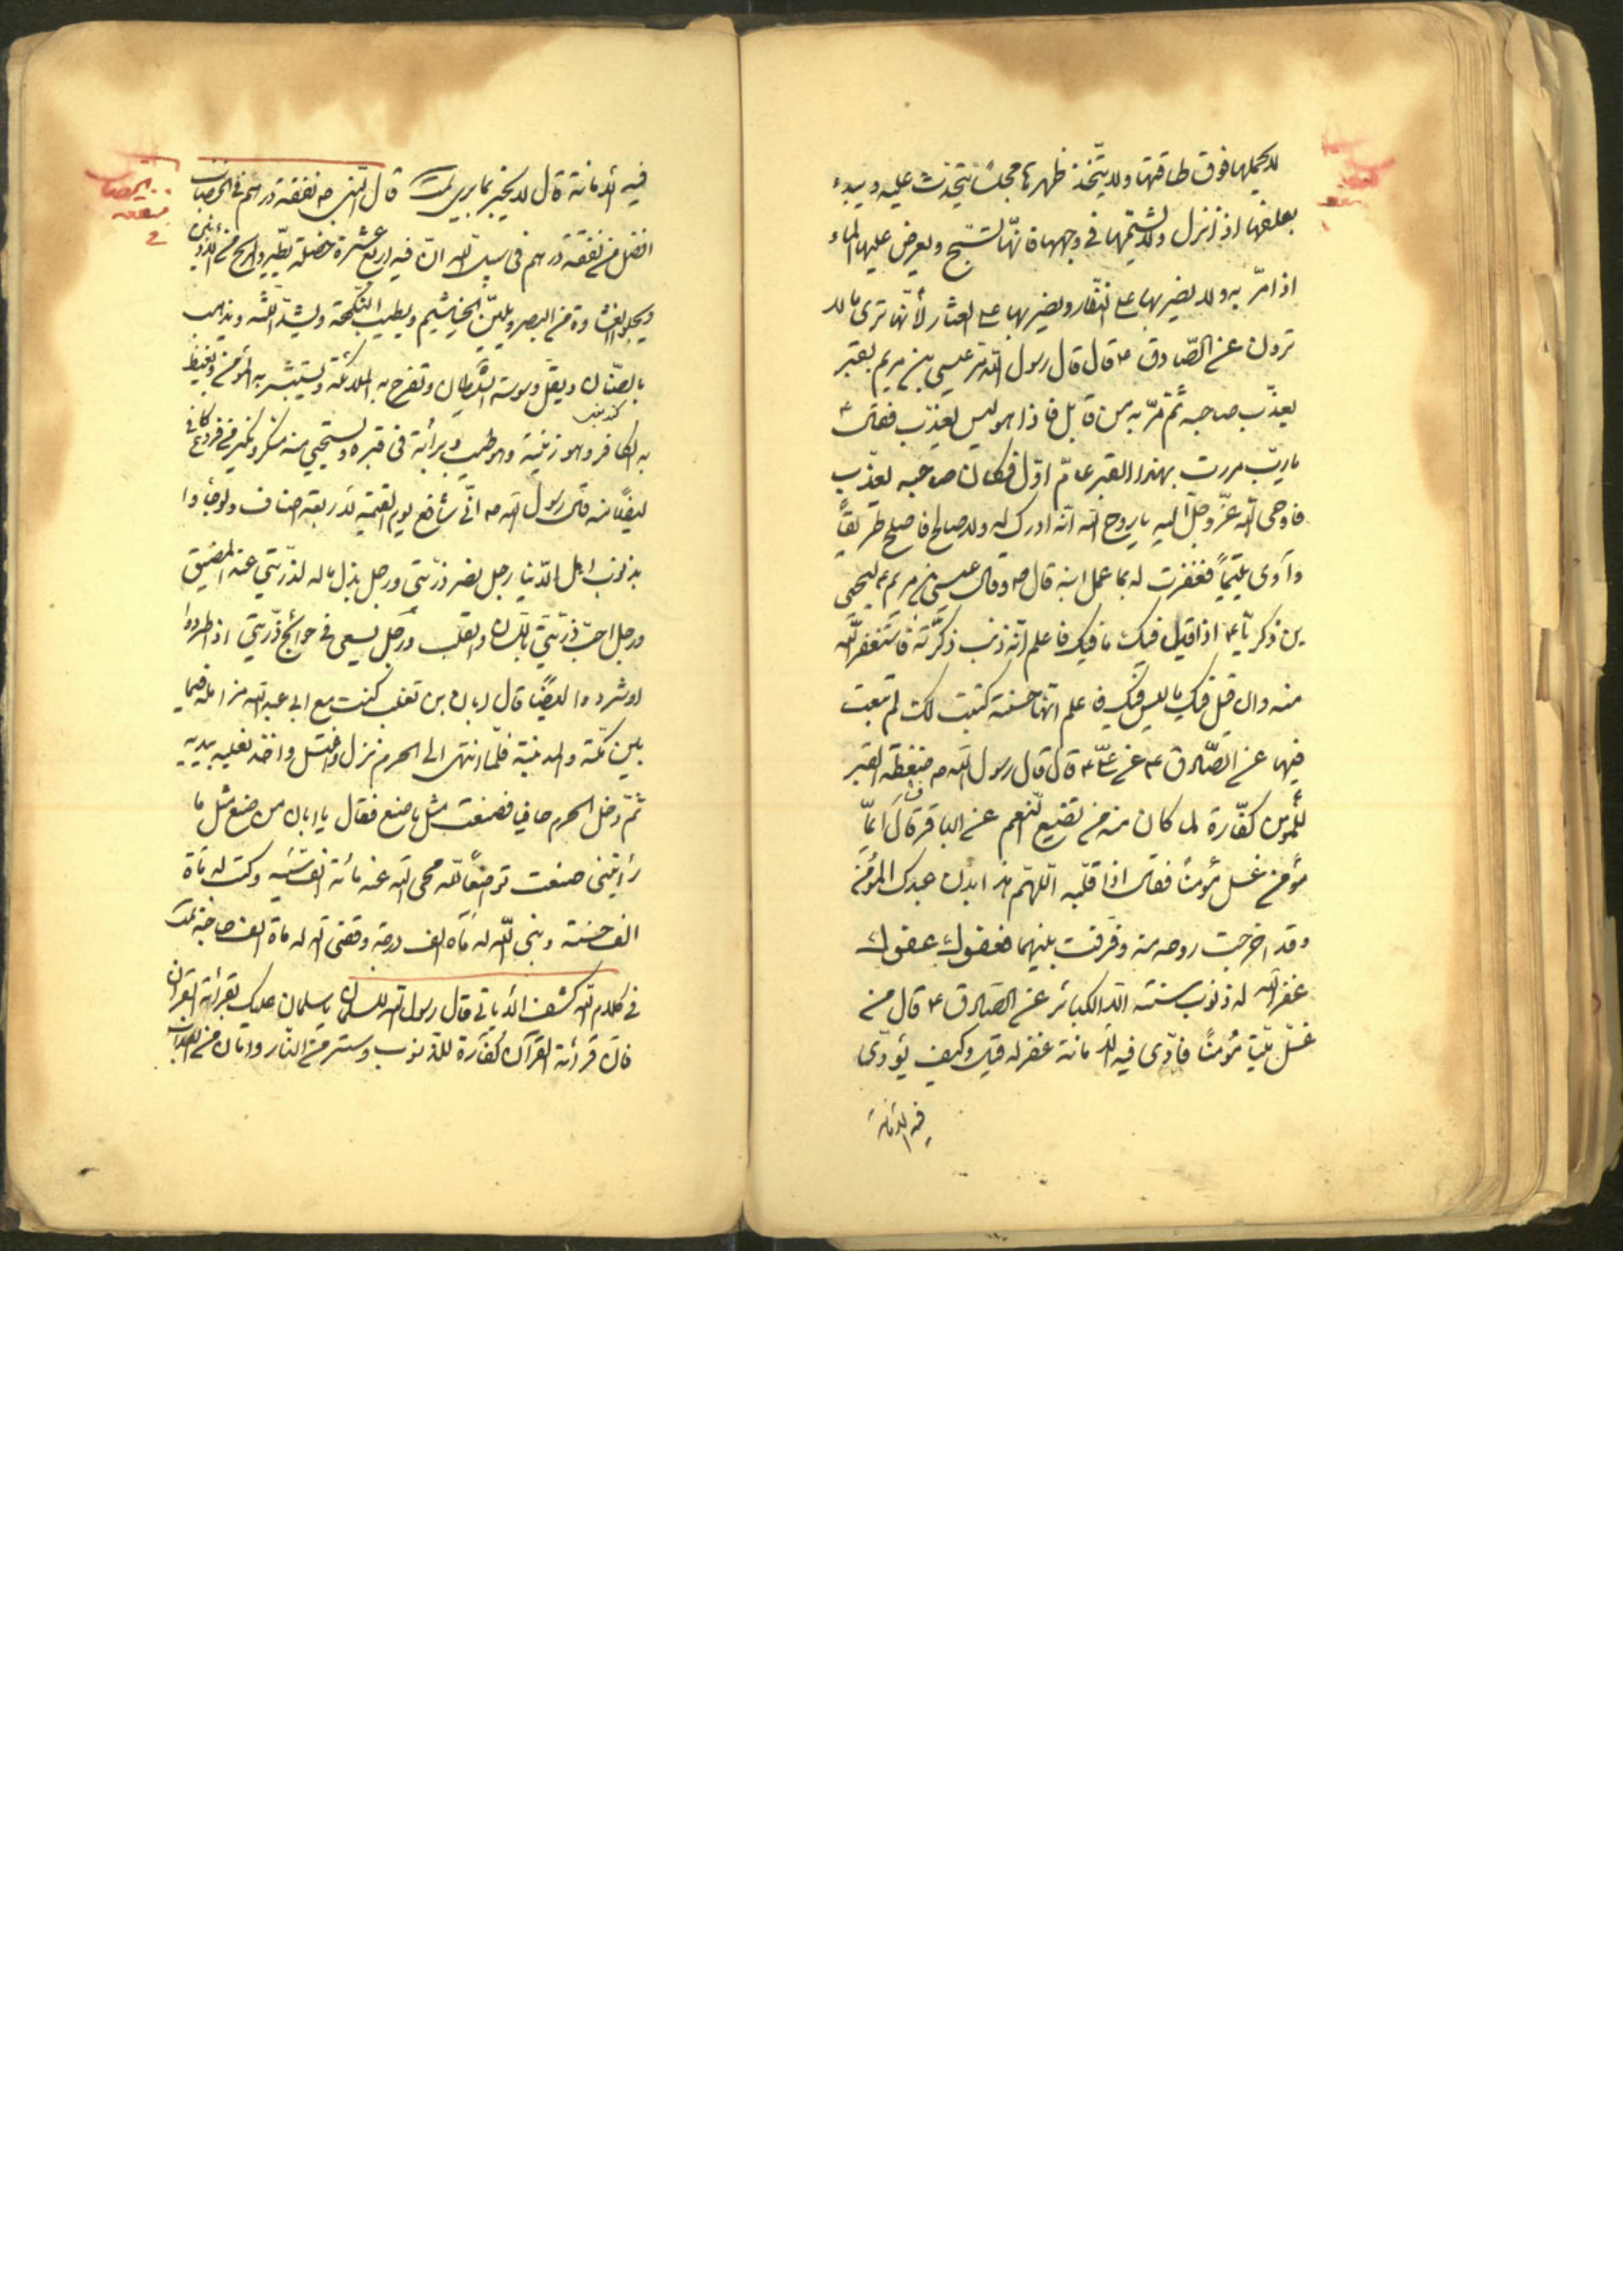 لا يحملها فوق طاقتها ولا يتّخذ ظهرها مجلسًا يتحدث عليه ويبدء
بعلفها اذا نزل ولا يشتمها في وجهها فانّها تسبّح ويعرض عليها الماء
اذا مرّ به ولا يضربها على النّفار ويضربها على العثار لأنّها ترى ما لا
ترون عن الصّادق ع قال قال رسول الله مرّ عيسى بن مريم بقبر
يعذّب صاحبه ثمّ مرّ به من قابل فاذا هو ليس يعذّب فقال
يا ربّ مررت بهذا القبر عامّ اوّل فكان صاحبه يعذّب
فاوحى الله عزّ وجلّ اليه يا روح الله انّه ادرك له ولد صالح فاصلح طريقًا
وآوى يتيمًا فغفرت له بما عمل ابنه قال ص وقال عيسى بن مريم ع ليحيى
بن ذكريّا ع اذا قيل فيك ما فيك فاعلم انّه ذنب ذكّرته فاستغفر الله
منه وان قيل فيك ما ليس فيك فاعلم انّها حسنة كتبت لك لم تتعب
فيها عن الصّادق ع عن علىّ ع قال قال رسول الله ص ضغطة القبر
للمؤمن كفّارة لما كان منه من تضييع النّعم عن الباقر قال ايّما
مؤمن غسل مؤمنًا فقال اذا قلّبه اللّهم هذا بدن عبدك المؤمن
وقد اخرجت روحه منه وفرقت بينهما فعفوك عفوك
غفر الله له ذنوب سنة الّا الكبائر عن الصّادق ع قال من
غسّل ميّتا مؤمنًا فادّى فيه الامانة غفر له قيل وكيف يؤدّى
فيه الامانة
فيه الامانة قال لا يخبر بما يرى قال النّبي ص نفقة درهم في الخضاب
افضل من نفقة درهم في سبيل الله انّ فيه اربع عشرة خصلة يطّرد الريح من الاذنين
ويجلو الغشاوة من البصر ويليّن الخياشيم ويطيب النّكهة ويشدّ اللثه ويذهب
بالضّنان ويقلّ وسوسة الشّيطان وتفرح به الملائكة ويستبشر به المؤمن ويغيظ
به الكافر وهو زينة وهو طيب وبرائة في قبره ويستحيي منه منكر ونكير من فروع كافي
ايضًا منه قال رسول الله ص انّي شافع يوم القيمة لاربعة اصناف ولو جاؤا
بذنوب اهل الدّنيا رجل نصر ذرّيّتي ورجل بذل ماله لذرّيّتي عند المضيق
ورجل احبّ ذرّيّتي باللّسان والقلب ورجل يسعى في حوائج ذرّيّتي اذا طردوا
او شردوا ايضًا قال ابان بن تغلب كنت مع ابي عبد الله مزامله فيما
بين مكّة والمدينة فلمّا انتهى الى الحرم نزل واغتسل واخذ نعليه بيديه
ثمّ دخل الحرم حافيا فصنعت مثل ما صنع فقال يا ابان من صنع مثل ما
رأيتني صنعت تواضعًا لله محى الله عنه مأئة الف سيّئة وكتب له مأة
الف حسنة وبنى الله له مأة الف درجة وقضى الله له مأة الف حاجة
في كلام الله كشف الآيات قال رسول الله لسلمان يا سلمان عليك بقرائة القرآن
فانّ قرائة القرآن كفّارة للذّنوب وستر من النّار وامان من العذاب